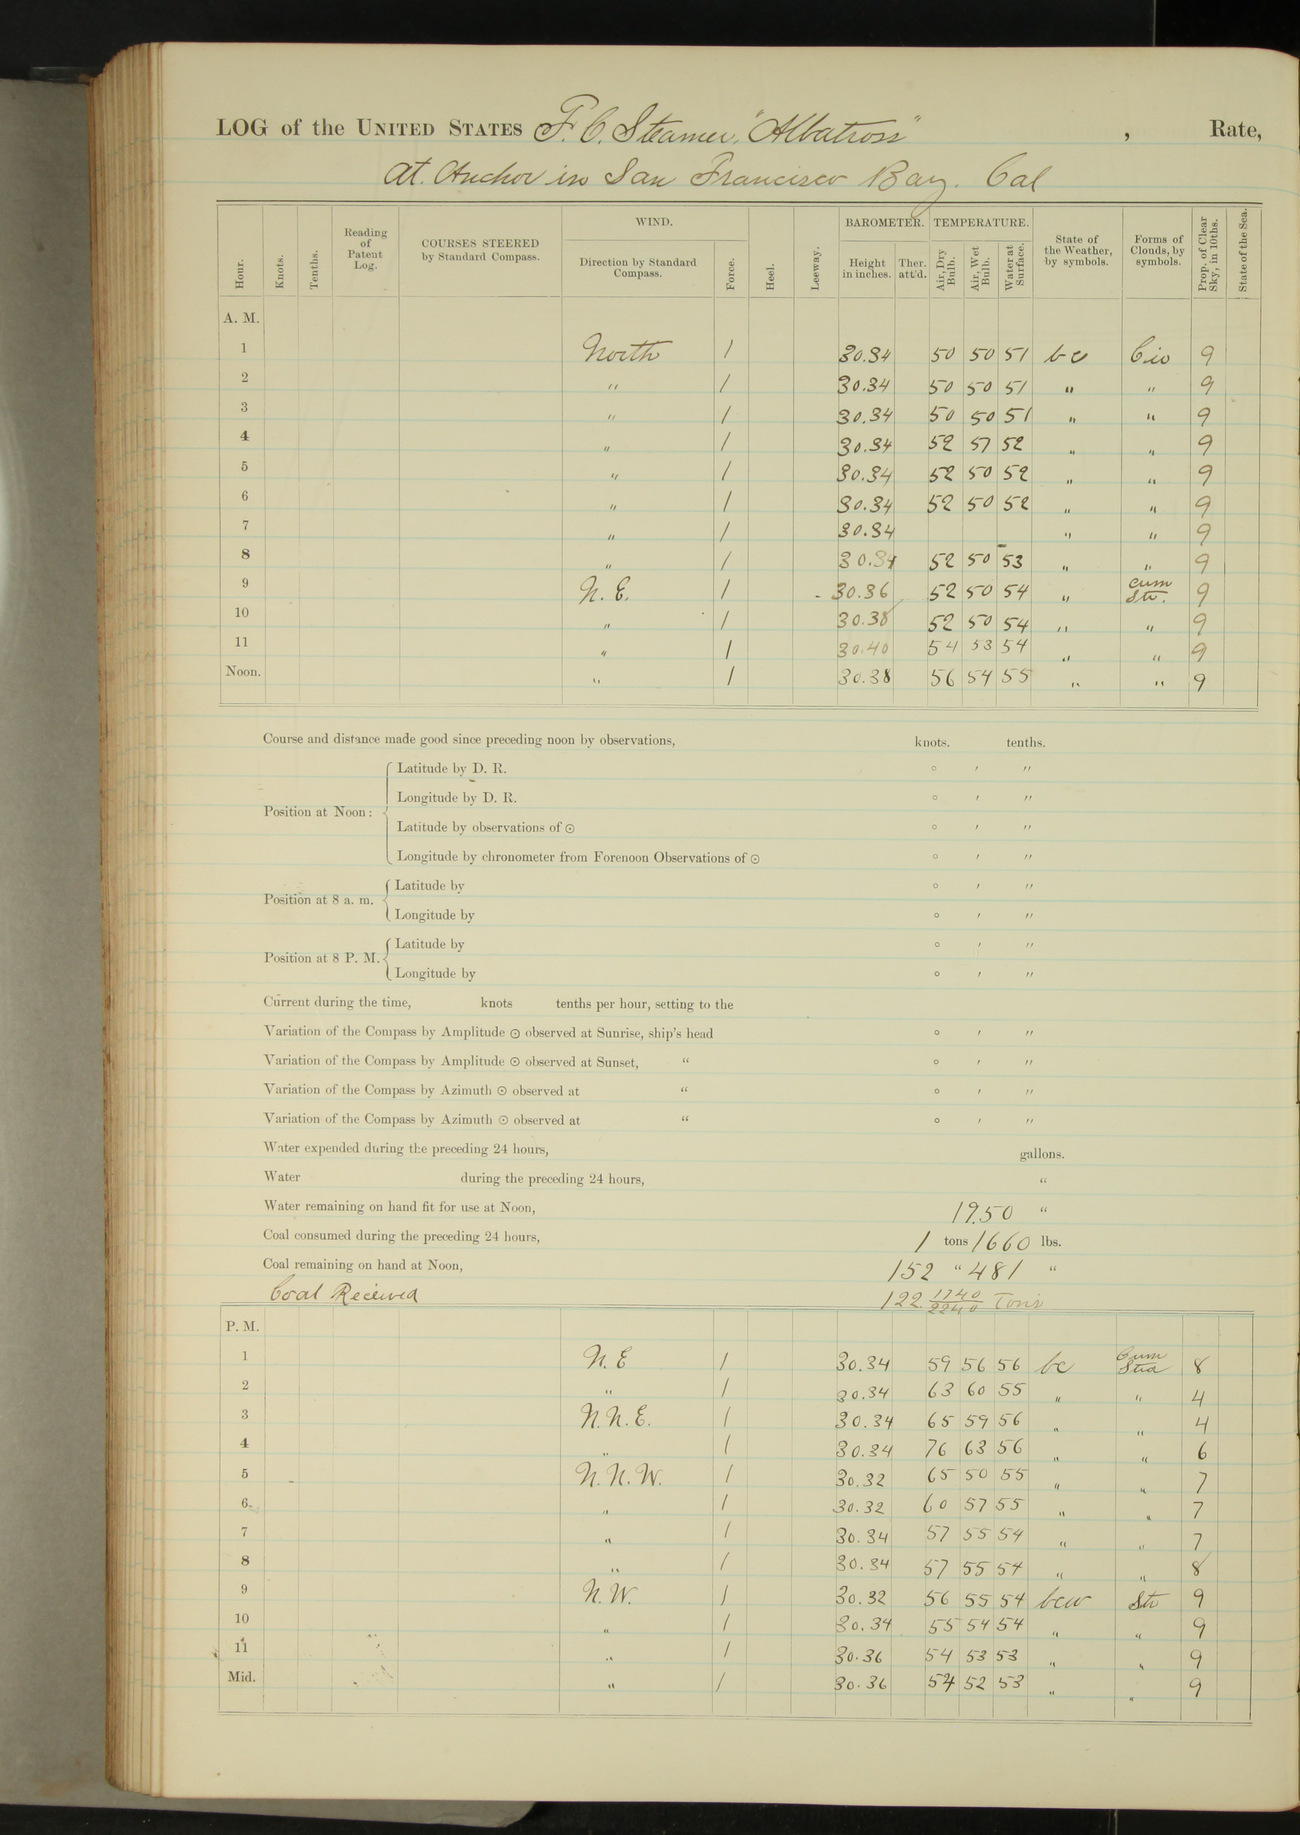 LOG of the UNITED STATES F. C. Steamer, "Albatross", Rate,
At. Anchor in San Francisco Bay. Cal
Hour. Knots. Tenths. Reading of Patent Log. COURSES STEERED by Standard Compass. WIND. Direction by Standard Compass. Force. Heel. Leeway. BAROMETER. Height in inches. Ther. att'd. TEMPERATURE. Air, Dry Bulb. Air, Wet Bulb. Water at Surface. State of the Weather, by symbols. Forms of Clouds, by symbols. Prop. of Clear Sky, in 10ths. State of the Sea.
A. M.
1 North 1 30.34 50 50 51 bc 9
2 " 1 30.34 50 50 51 " " 9
3 " 1 30.34 50 50 51 " " 9
4 " 1 30.34 52 57 52 " " 9
5 " 1 30.34 52 50 52 " " 9
6 " 1 30.34 52 50 52 " " 9
7 " 1 30.34 " " 9
8 " 1 30.34 52 50 53 " " 9
9 N. E. 1 30.36 52 50 54 " Cum Str. 9
10 " 1 30.38 52 50 54 " " 9
11 " 1 30.40 54 53 54 " " 9
Noon. " 1 30.38 56 54 55 " " 9
Course and distance made good since preceding noon by observations, knots. tenths.
Position at Noon: Latitude by D. R. ° ′ ″
Longitude by D. R. ° ′ ″
Latitude by observations of ⊙ ° ′ ″
Longitude by chronometer from Forenoon Observations of ⊙ ° ′ ″
Position at 8 a. m. Latitude by ° ′ ″
Longitude by ° ′ ″
Position at 8 P. M. Latitude by ° ′ ″
Longitude by ° ′ ″
Current during the time, knots tenths per hour, setting to the
Variation of the Compass by Amplitude ⊙ observed at Sunrise, ship's head ° ′ ″
Variation of the Compass by Amplitude ⊙ observed at Sunset, “ ° ′ ″
Variation of the Compass by Azimuth ⊙ observed at “ ° ′ ″
Variation of the Compass by Azimuth ⊙ observed at “ ° ′ ″
Water expended during the preceding 24 hours, gallons.
Water during the preceding 24 hours, “
Water remaining on hand fit for use at Noon, 1950 “
Coal consumed during the preceding 24 hours, 1 tons 1660 lbs.
Coal remaining on hand at Noon, 152 “ 481 “
Coal Received 122 1740/2240 Tons
P. M.
1 N. E 1 30.34 59 56 56 bc Cum Stra 8
2 " 1 30.34 63 60 55 " " 4
3 N. N. E. 1 30.34 65 59 56 " " 4
4 " 1 30.34 76 63 56 " " 6
5 N. N. W. 1 30.32 65 50 55 " " 7
6 " 1 30.32 60 57 55 " " 7
7 " 1 30.34 57 55 54 " " 7
8 " 1 30.34 57 55 54 " " 8
9 N. W. 1 30.32 56 55 54 bcw Str 9
10 " 1 30.34 55 54 54 " " 9
11 " 1 30.36 54 53 53 " " 9
Mid. " 1 30.36 54 52 53 " " 9